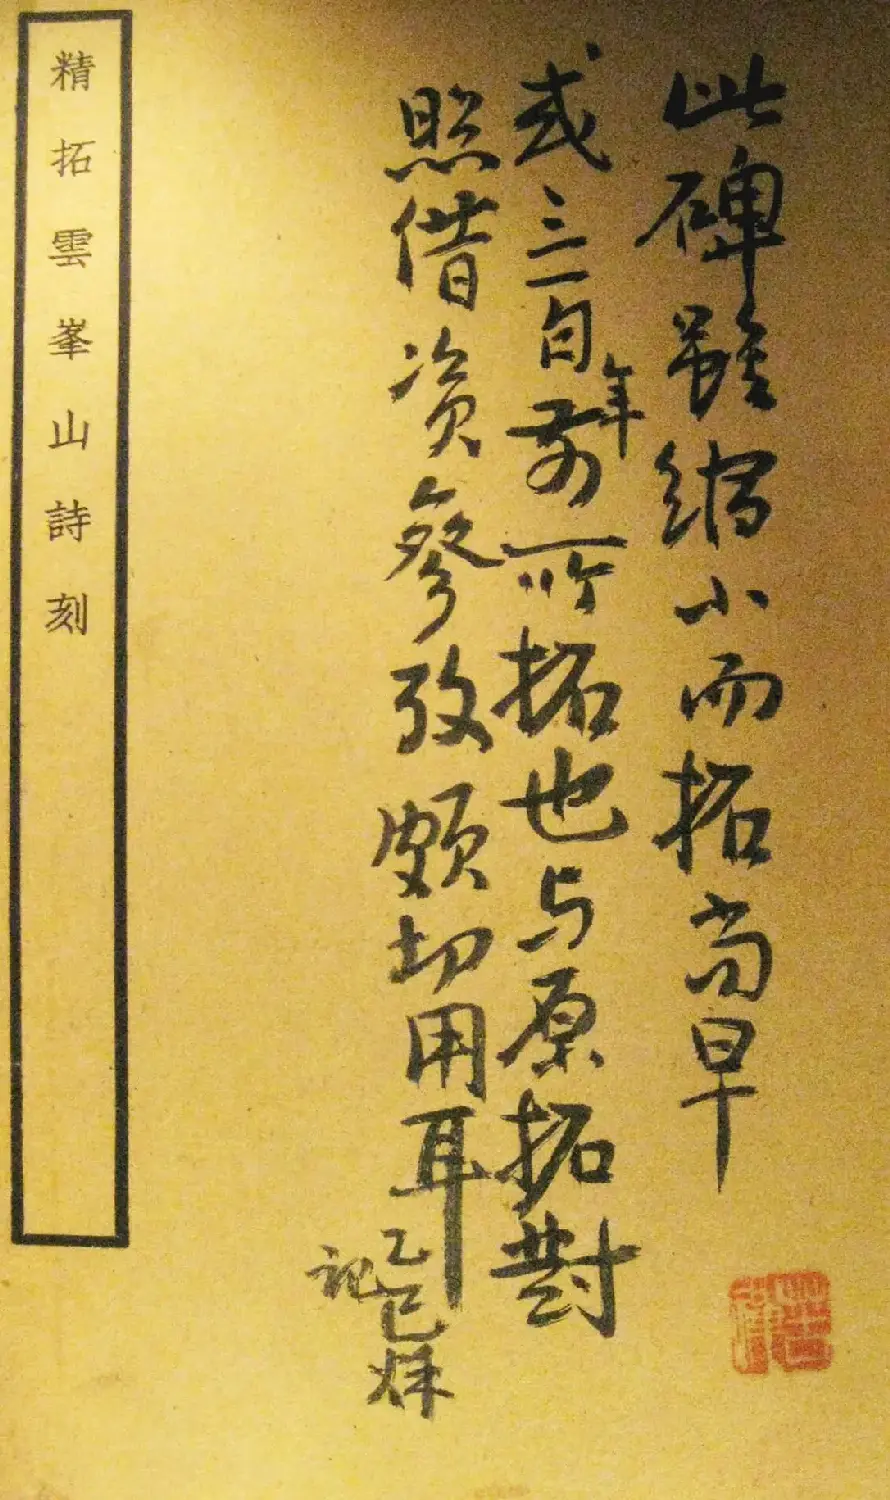 此碑雖縮小而拓尚早
或三旬年前所拓也与原拓對
照借资參攷頗切用耳
乙巳烁
記
精拓雲峯山詩刻